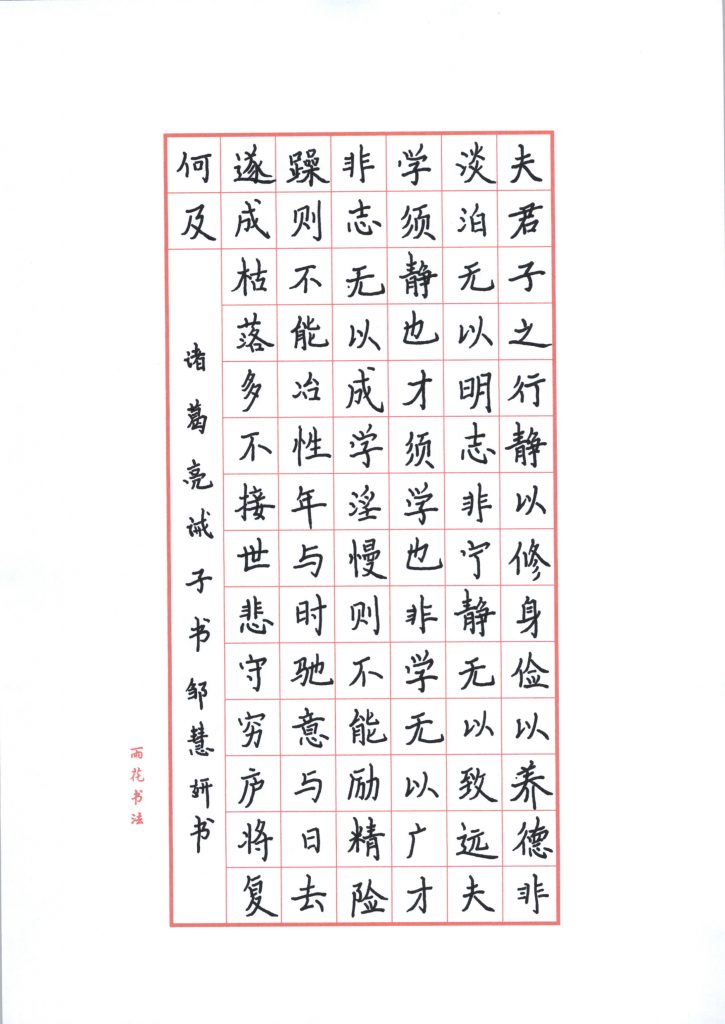 夫君子之行静以修身俭以养德非
淡泊无以明志非宁静无以致远夫
学须静也才须学也非学无以广才
非志无以成学淫慢则不能励精险
躁则不能冶性年与时驰意与日去
遂成枯落多不接世悲守穷庐将复
何及
诸葛亮诫子书邹慧妍书
雨花书法